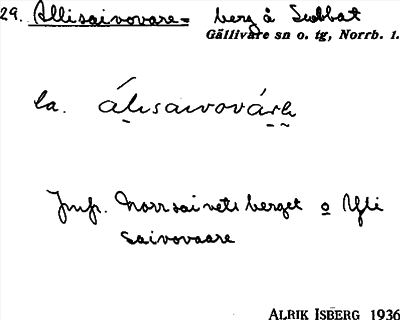 29. Allisaivovare = berg å Subbat
Gällivare sn o. tg, Norrb. l.
la. álisaivovárē
Jmf. Norrsaivetsberget o Yli
saivovaare
ALRIK ISBERG 1936